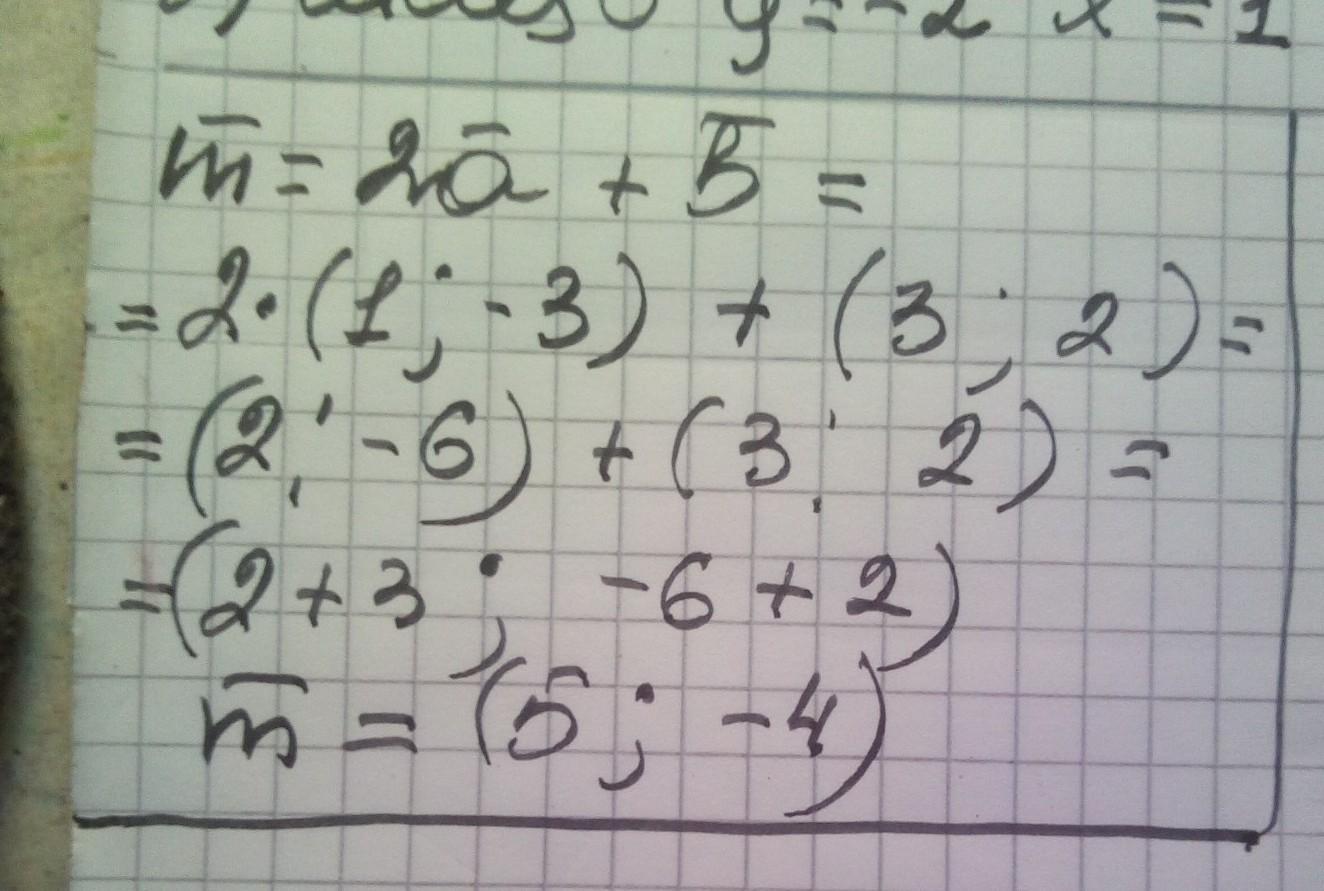 y = -2 x = 1
m̅ = 2a̅ + b̅ =
= 2·(1; -3) + (3; 2) =
= (2; -6) + (3; 2) =
= (2 + 3; -6 + 2)
m̅ = (5; -4)